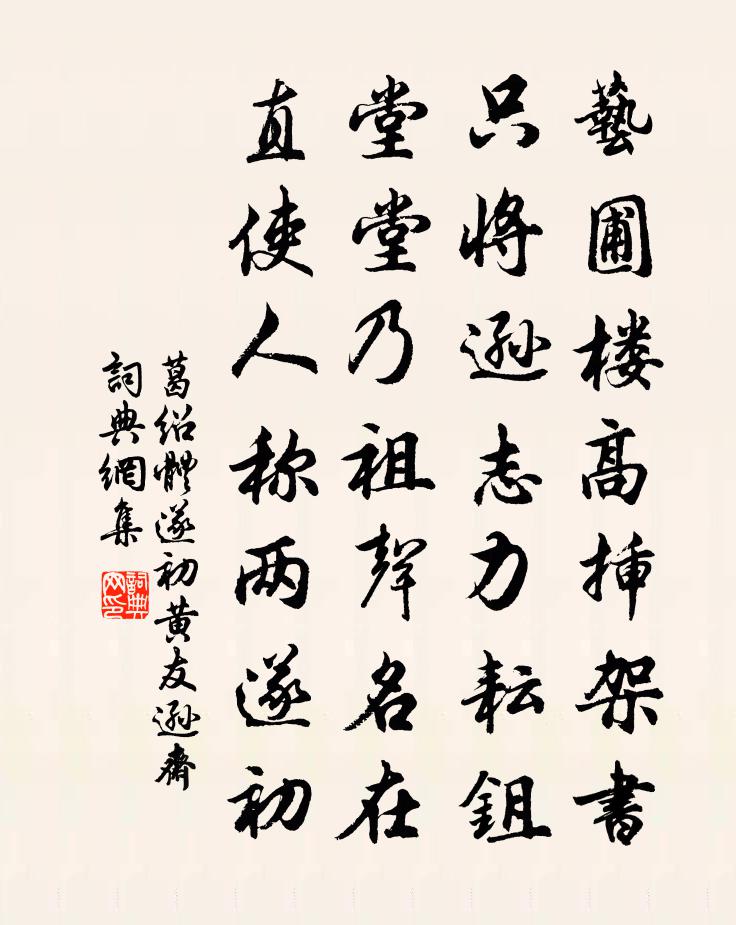 藝圃楼高揷架書
只將遜志力耘鉏
堂堂乃祖聲名在
直使人称两遂初
葛绍體遂初黄友遜齋
詞典網集
詞典网印